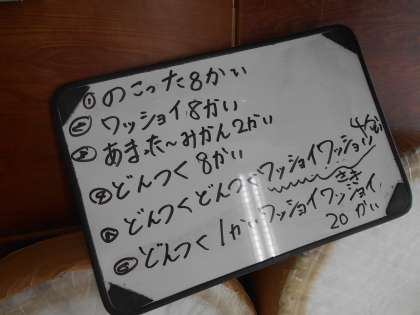 ①のこった8かい
②ワッショイ8かい
③あまった〜みかん2かい
④どんつく8かい
⑤どんつくどんつくワッショイワッショイ4かい
さき
⑥どんつく1かいワッショイワッショイ
20かい